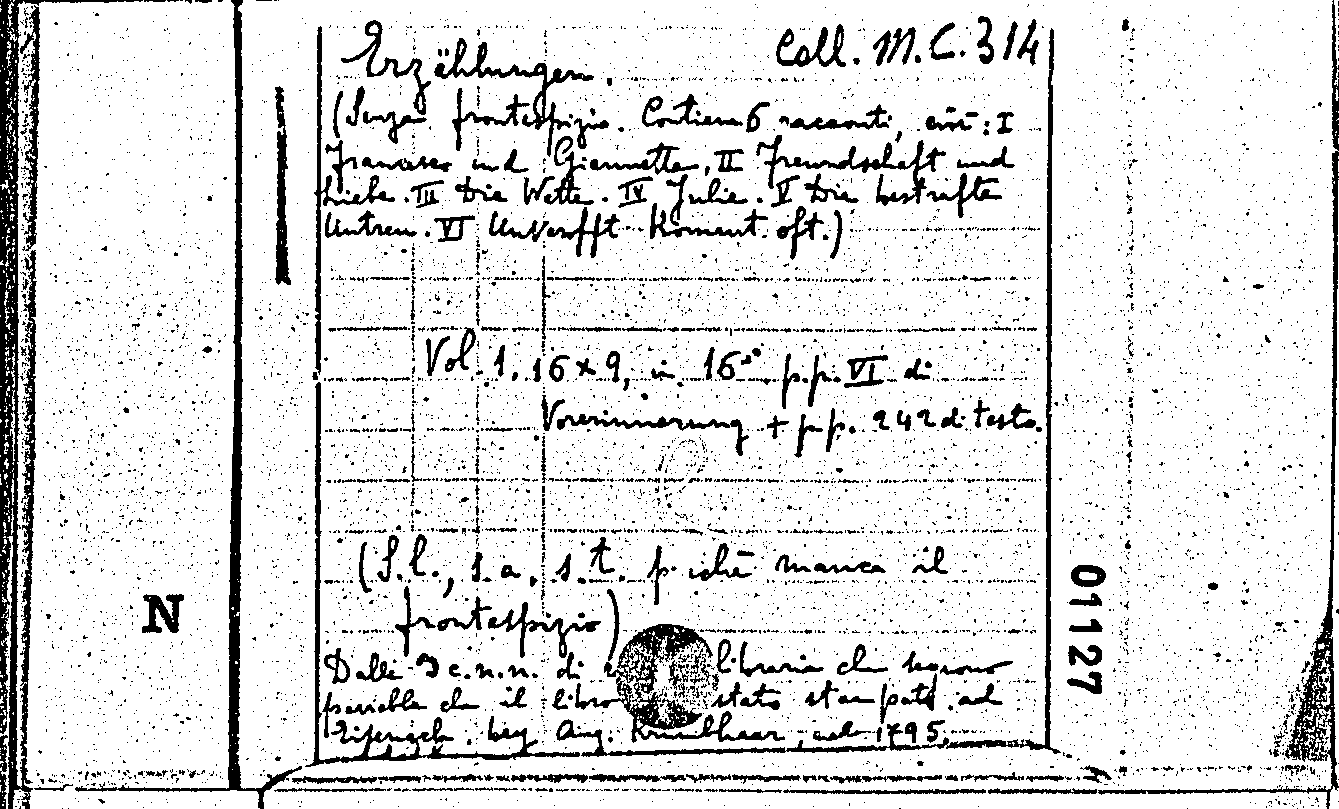 Coll. M.C. 314
Erzählungen.
(Senza frontespizio. Contiene 6 racconti, cioè: I
Francesco und Giannetta, II Freundschaft und
Liebe. III Die Wette. IV Julie. V Die bestrafte
Untreu. VI Unverofft Koment oft.)
Vol. 1. 16 x 9, in 16° p.p. VI di
Vorerinnerung + p.p. 242 di testo.
(S.l., s.a, s.t. p. ichè manca il
frontespizio)
Dalle di libraria che seguono
che il libro stato stampato ad
bey Aug. , nel 1795.
N
01127